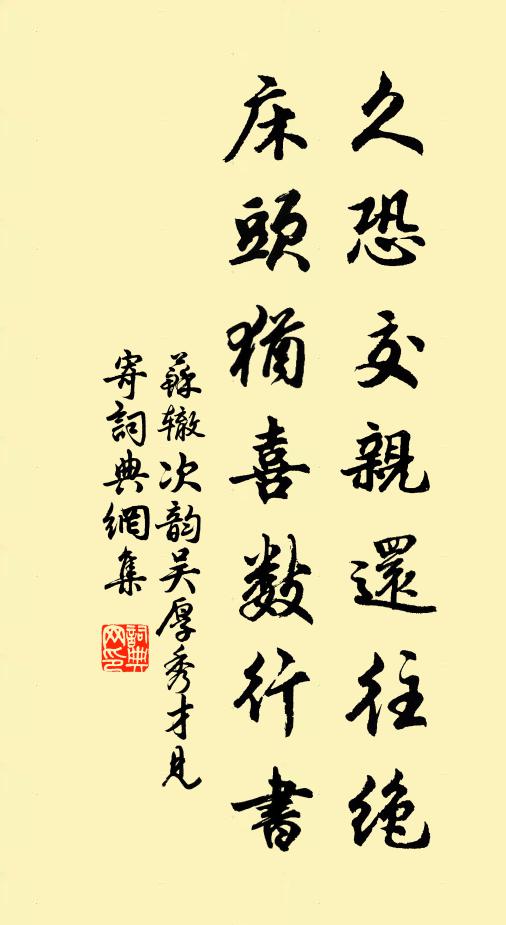 久恐交親還往絕
床頭猶喜數行書
蘇轍次韵吴厚秀才見
寄詞典網集
詞典網印